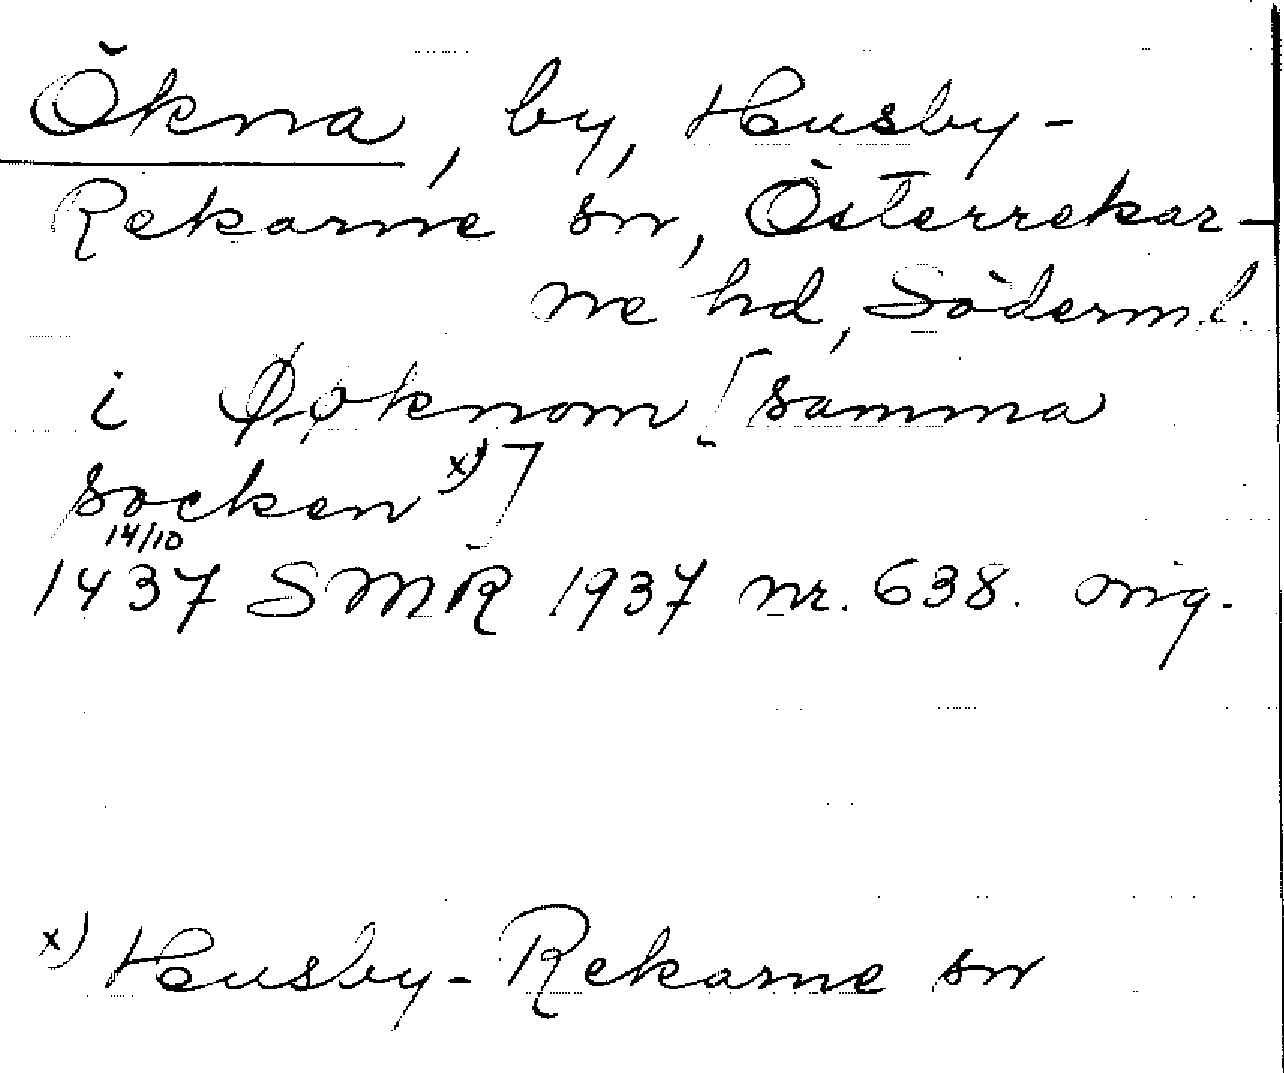 Ökna, by, Husby-
Rekarne sn, Österrekar-
ne hd, Söderml.
i Øøknom [samma
socken x)]
14/10
1437 SMR 1937 nr. 638. orig.
x) Husby-Rekarne sn